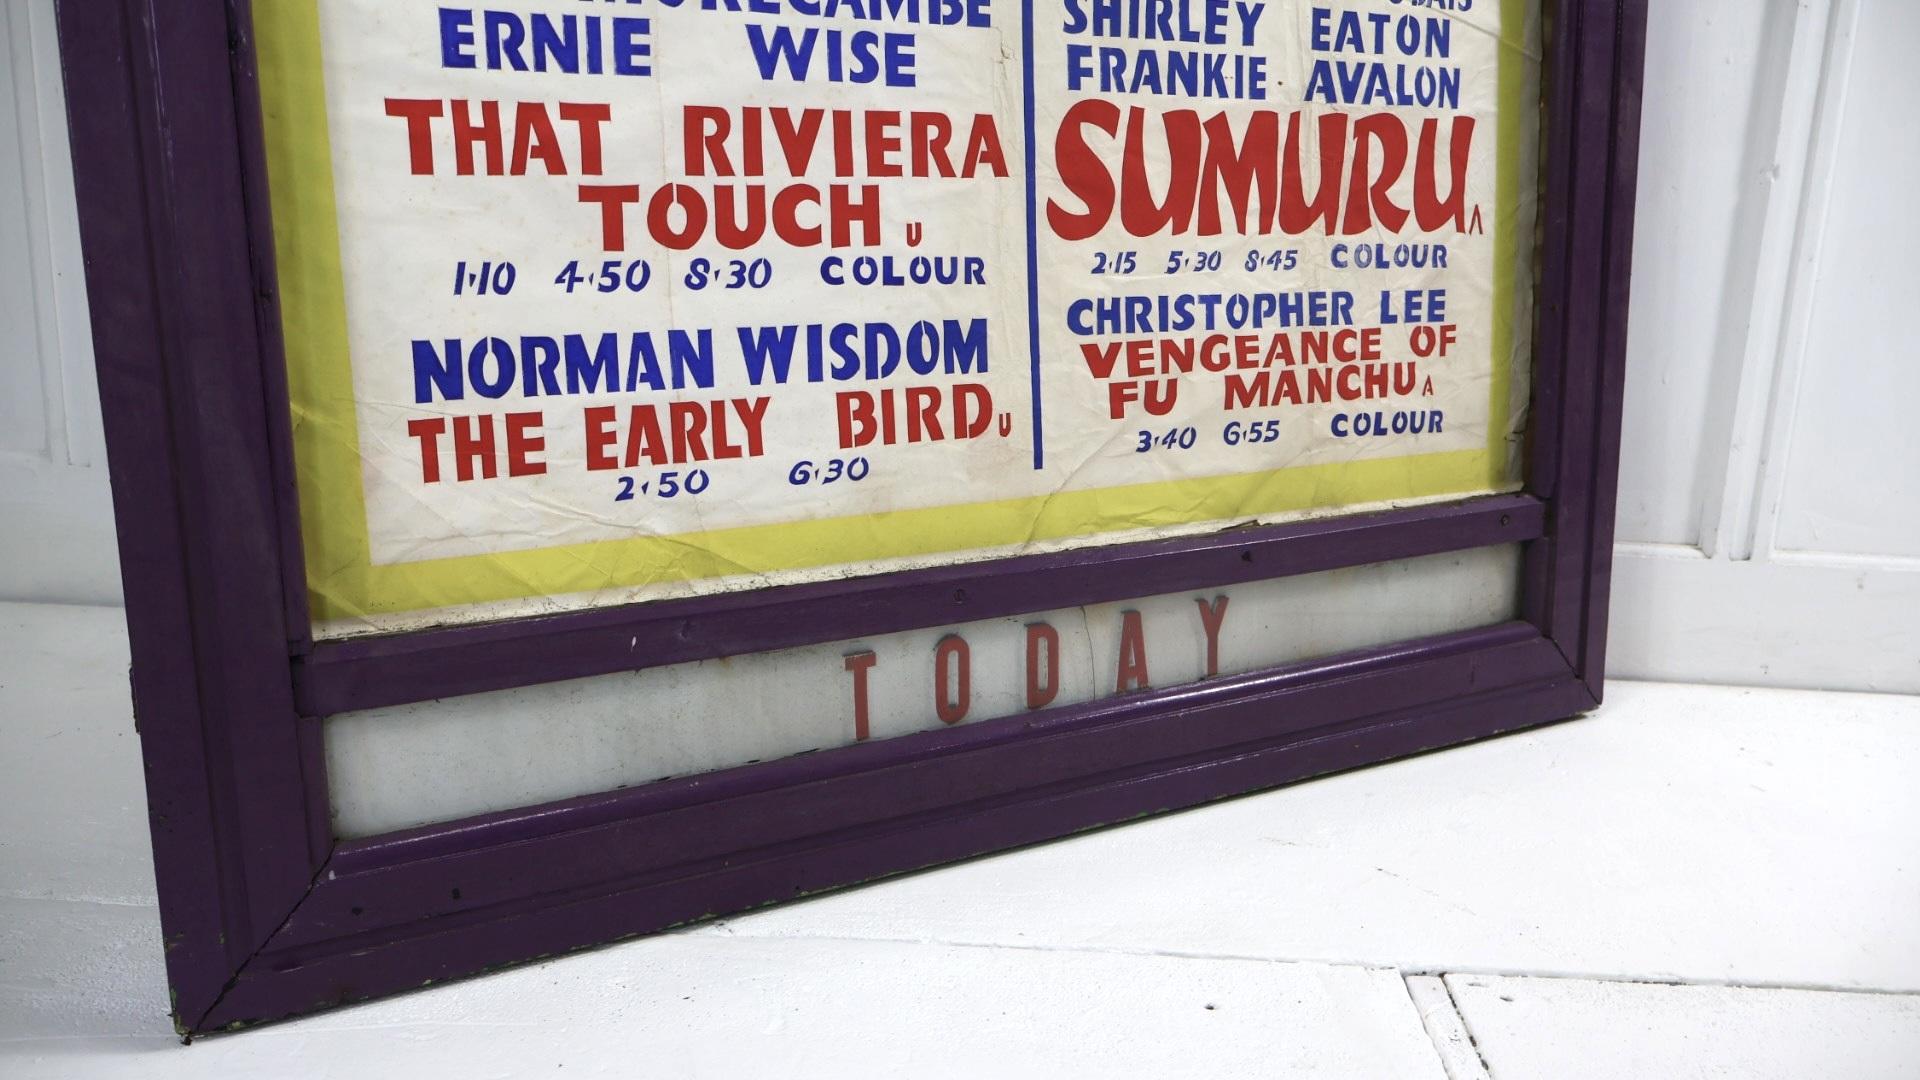 MORECAMBE
ERNIE WISE
THAT RIVIERA
TOUCH U
1·10 4·50 8·30 COLOUR
NORMAN WISDOM
THE EARLY BIRD U
2·50 6·30
SHIRLEY EATON
FRANKIE AVALON
SUMURU A
2·15 5·30 8·45 COLOUR
CHRISTOPHER LEE
VENGEANCE OF
FU MANCHU A
3·40 6·55 COLOUR
TODAY